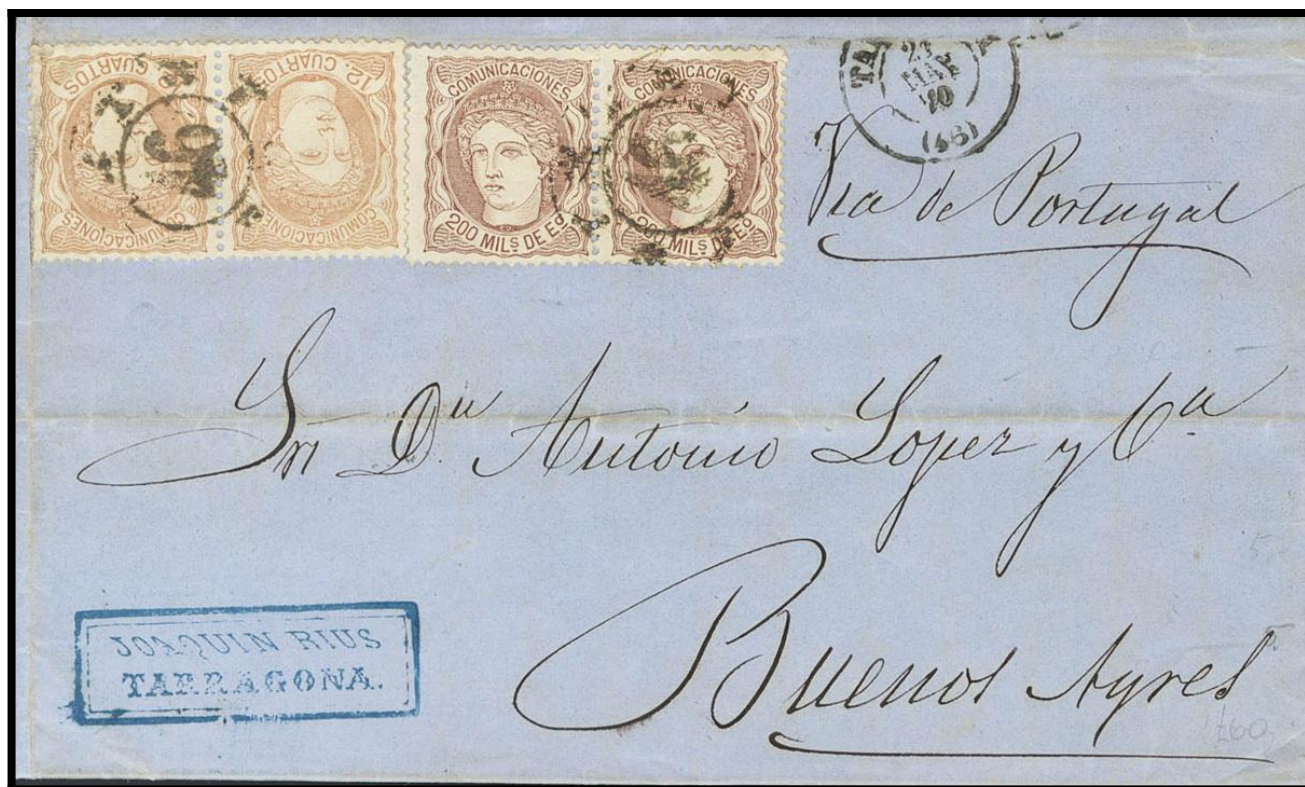 12. CUARTOS
COMUNICACIONES
CUARTOS
COMUNICACIONES
COMUNICACIONES
200 MILS DE EO
COMUNICACIONES
200 MILS DE EO
TA
MAR
70
(46)
Via de Portugal
Sr Dn Antonio Lopez y Ca
Buenos Ayres
JOAQUIN RIUS
TARRAGONA.